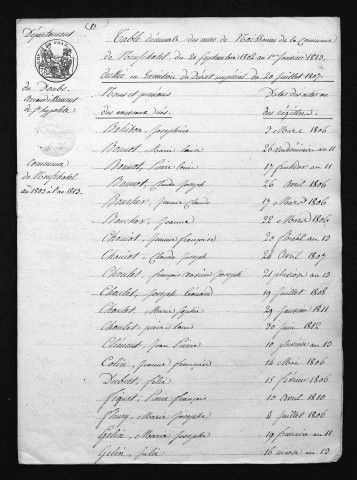 Département
du Doubs
Arrondissement
de St hypolite
Commune
de Neufchâtel
an 1803 à l'an 1813.
Table décennale des actes de Naissances de la Commune
de Neufchatel, du 21 Septembre 1802 au 1er Janvier 1813,
dressée en Exécution du Décret impérial du 20 juillet 1807.
Noms et prénoms des nouveaux nés. Dates des actes des régistres.
Josephine 3 Mars 1806
Bonnot, Marie Louise 26 vendémiaire an 11
Bonnot, Pierre Louis 17 an 11
Bonnot, Claude Joseph 26 avril 1806
Boucher, Jeanne Claude 17 Mars 1806
Boucher, Jeanne 22 Mars 1806
Chaviot, Jeanne françoise 20 floréal an 13
Chaviot, Claude Joseph 24 avril 1807
Choulet, françois xavier Joseph 21 pluviose an 13
Choulet, Joseph Léonard 19 juillet 1808
Choulet, Marie Sophie 29 an 11
Choulet, pierre Louis 30 juin 1812
Clément, Jean Pierre 10 pluviose an 13
Colin, Jeanne françoise 14 Mai 1806
Dubret, félix 15 février 1806
Figuet, Pierre François 10 avril 1810
fleury, Marie Josephe 4 juillet 1806
Gelin, Marie Josephe 19 frimaire an 11
Gelin, Julie 16 nivose an 13